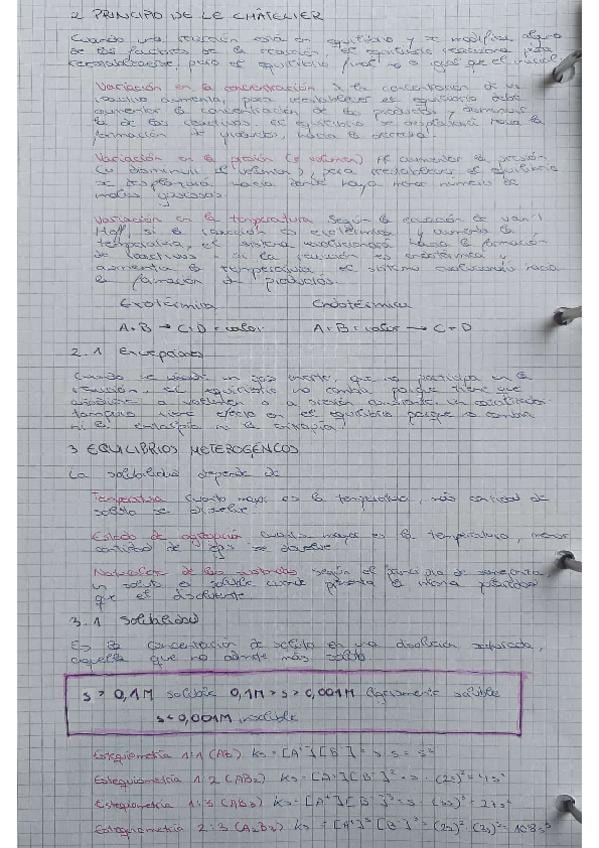 2 PRINCIPIO DE LE CHÂTELIER
Cuando una reacción está en equilibrio y se modifica alguno
de los factores de la reacción, el equilibrio reacciona para
reestablecerse, pero el equilibrio final no es igual que el inicial
Variación en la concentración Si la concentración de un
reactivo aumenta, para reestablecer el equilibrio debe
aumentar la concentración de los productos y disminuir
la de los reactivos, el equilibrio se desplazará hacia la
formación de productos, hacia la derecha.
Variación en la presión (o volumen) Al aumentar la presión
(o disminuir el volumen), para reestablecer el equilibrio
se desplazará hacia donde haya menor número de
moles gaseosos.
Variación en la temperatura Según la ecuación de van't
Hoff, si la reacción es exotérmica y aumenta la
temperatura, el sistema evolucionará hacia la formación
de reactivos. Si la reacción es endotérmica y
aumenta la temperatura, el sistema evolucionará hacia
la formación de productos.
Exotérmica Endotérmica
A+B → C+D+calor A+B+calor → C+D
2.1 Excepciones
Cuando se añade un gas inerte, que no participa en la
reacción, el equilibrio no cambia porque tiene que
a volumen o a presión constante. Un catalizador
tampoco tiene efecto en el equilibrio porque no cambia
ni la entalpía ni la entropía.
3 EQUILIBRIOS HETEROGÉNEOS
La solubilidad depende de
Temperatura Cuanto mayor es la temperatura, más cantidad de
soluto se disuelve.
Estado de agregación Cuanto mayor es la temperatura, menor
cantidad de gas se disuelve
Naturaleza de las sustancias Según el principio de semejanza
un soluto es soluble cuando presenta la misma polaridad
que el disolvente.
3.1 Solubilidad
Es la concentración de soluto en una disolución saturada,
aquella que no admite más soluto
s > 0,1M soluble 0,1M > s > 0,001M ligeramente soluble
s < 0,001M insoluble
Estequiometría 1:1 (AB) Ks = [A⁺][B⁻] = s·s = s²
Estequiometría 1:2 (AB₂) Ks = [A⁺][B⁻]² = s·(2s)² = 4s³
Estequiometría 1:3 (AB₃) Ks = [A⁺][B⁻]³ = s·(3s)³ = 27s⁴
Estequiometría 2:3 (A₂B₃) Ks = [A⁺]²[B⁻]³ = (2s)²·(3s)³ = 108s⁵